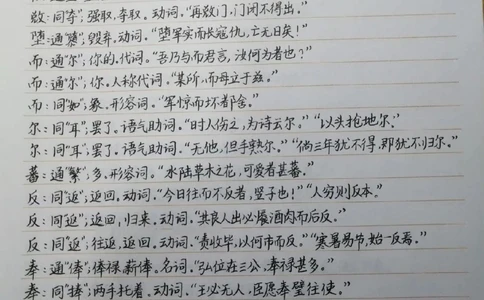 敚：同"夺"；强取，夺取。动词。"再敚门，门闭不得出。"
堕：通"隳"，毁弃。动词。"堕军实而长寇仇，亡无日矣！"
而：通"尔"；你的，代词。"吾乃与而君言，汝何为者也？"
而：通"尔"；你。人称代词。"某所，而母立于兹。"
而：同"如"；象，形容词。"军惊而坏都舍。"
尔：同"耳"；罢了。语气助词。"时人伤之，为诗云尔。""以头抢地尔。"
尔：同"耳"；罢了。语气助词。"无他，但手熟尔。""倘三年犹不得，即犹不归尔。"
蕃：通"繁"；多，形容词。"水陆草木之花，可爱者甚蕃。"
反：同"返"；返回。动词。"今日往而不反者，竖子也！""人穷则反本。"
反：同"返"；返回，归来。动词。"共良人出必餍酒肉而后反。"
反：同"返"；往返，返回。动词。"责收毕，以何市而反。""寒暑易节，始一反焉。"
奉：通"俸"；俸禄，薪俸。名词。"弘位在三公，奉禄甚多。"
奉：同"捧"；两手托着。动词。"王必无人，臣愿奉璧往使。"